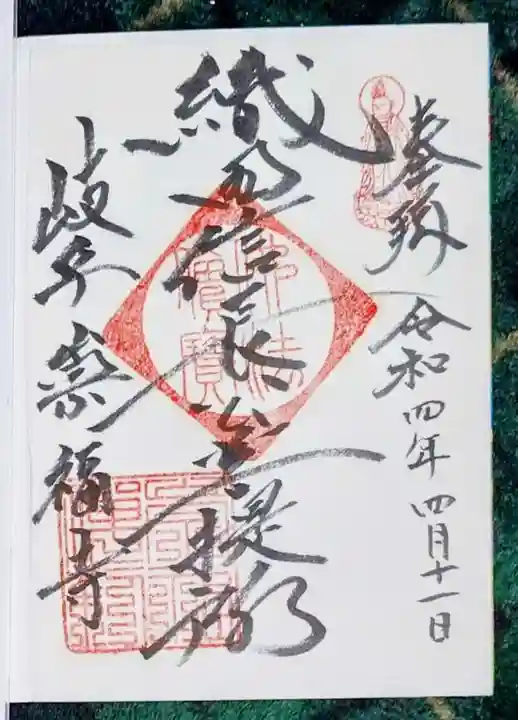 奉拝
令和四年四月十一日
織田信長公菩提所
岐阜崇福寺